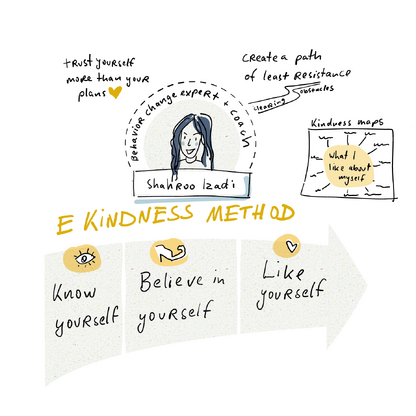 trust yourself
more than your
plans
Create a path
of least resistance
clearing obstacles
Behavior change expert + coach
Shahroo Izadi
Kindness maps
What I
like about
myself
E KINDNESS METHOD
Know
yourself
Believe in
yourself
Like
yourself